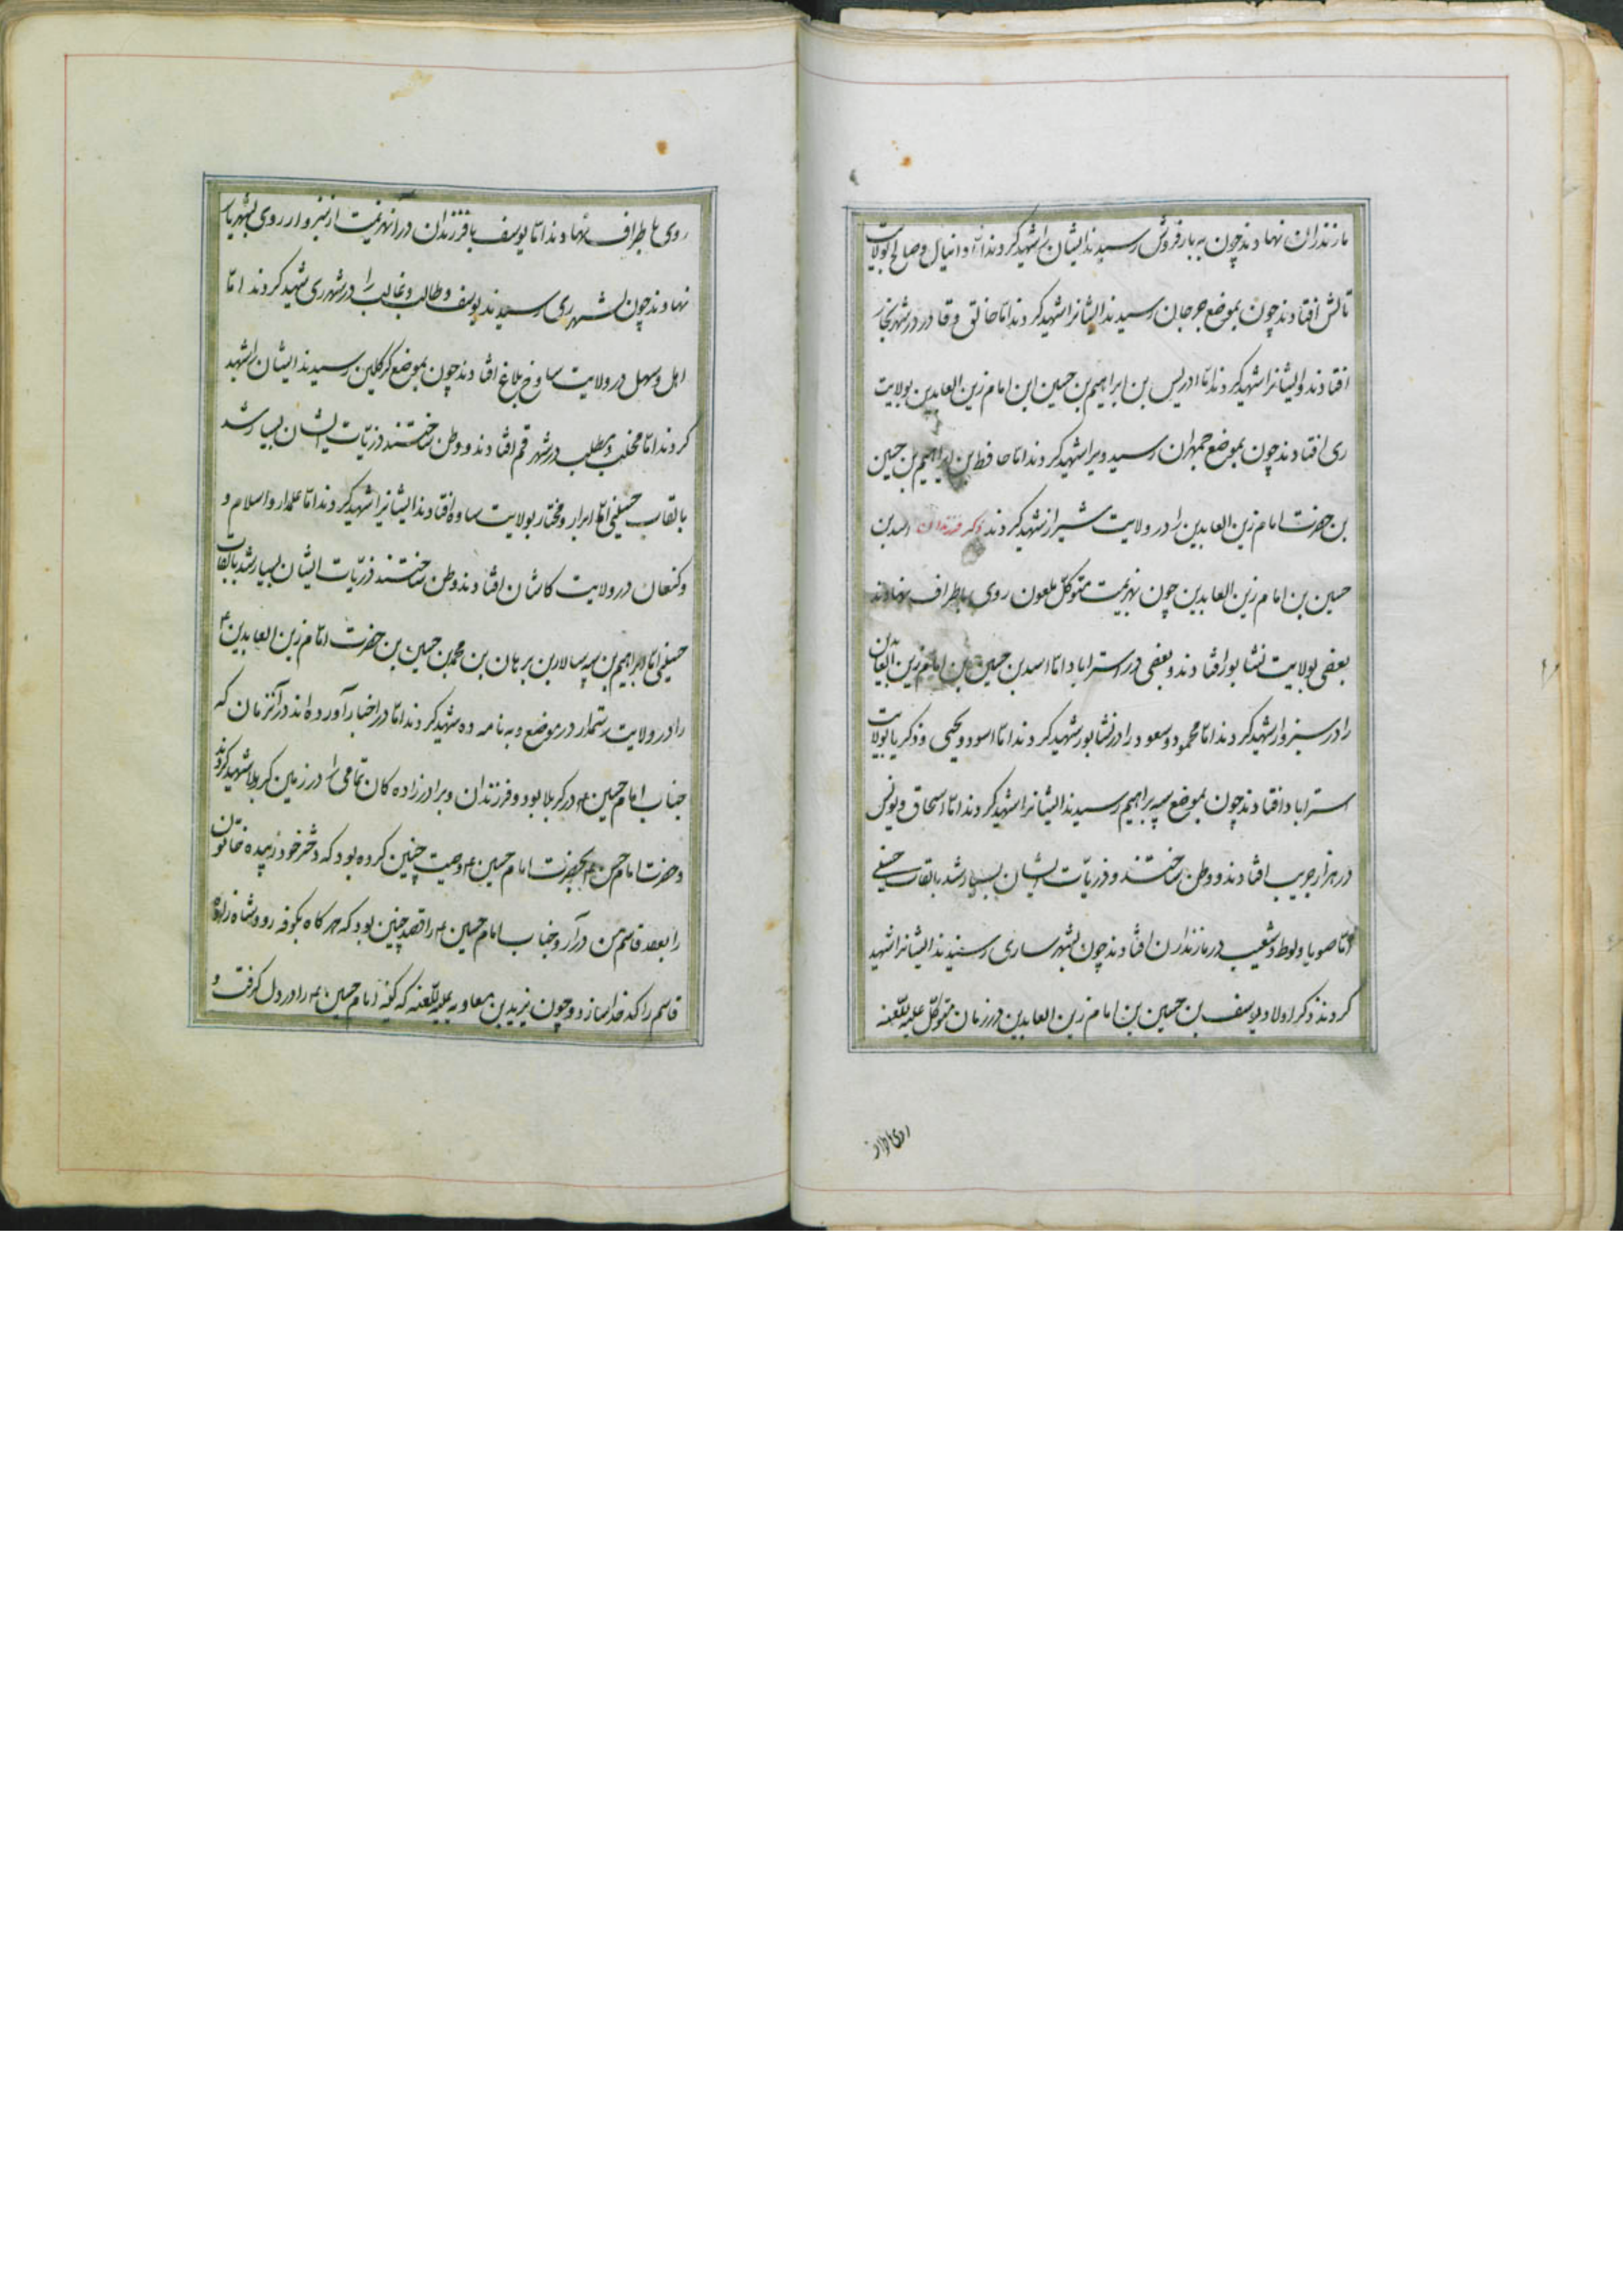 مازندران نهادند چون به بارفروش رسیدند ایشان را شهید کردند اما دانیال و صالح بولایت
تالش افتادند چون بموضع جرجان رسیدند ایشانرا شهید کردند اما خالق و قادر در شهر
افتادند و ایشانرا شهید کردند اما ادریس بن ابراهیم بن حسین ابن امام زین العابدین بولایت
ری افتادند چون بموضع جمهران رسید ویرا شهید کردند اما حافظ بن ابراهیم بن حسین
بن حضرت امام زین العابدین را در ولایت شیراز شهید کردند ذکر فرزندان اسد بن
حسین بن امام زین العابدین چون بهزیمت متوکل ملعون روی باطراف نهادند
بعضی بولایت نشابور افتادند و بعضی در استراباد اما اسد بن حسین بن امام زین العابدین
را در سبزوار شهید کردند اما محمود و مسعود را در نشابور شهید کردند اما اسود و یحیی و ذکریا بولایت
استراباد افتادند چون بموضع سپه براهیم رسیدند ایشانرا شهید کردند اما اسحاق و یونس
در هزار جریب افتادند و وطن ساختند و ذریّات ایشان بسیار شد بالقاب حسینی
اما صوبا و لوط و شعیب در مازندران افتادند چون بشهر ساری رسیدند ایشانرا شهید
کردند ذکر اولاد یوسف بن حسین بن امام زین العابدین در زمان متوکل علیه اللعنه
روی باطراف نهادند اما یوسف با فرزندان در آن هزیمت از سبزوار روی بشهریار
نهادند چون بشهر ری رسیدند یوسف و طالب و غالب را در شهر ری شهید کردند اما
اهل و سهل در ولایت ساوخ بلاغ افتادند چون بموضع کرکلین رسیدند ایشان را شهید
کردند اما مخلب و مطلب در شهر قم افتادند و وطن ساختند ذریّات ایشان بسیار شد
بالقاب حسینی اما ابرار و مختار بولایت ساوه افتادند ایشانرا شهید کردند اما علمدار و اسلام و
و کنعان در ولایت کاشان افتادند وطن ساختند ذریّات ایشان بسیار شد بالقاب
حسینی اما ابراهیم بن سپه سالار بن برهان بن محمد بن حسین بن حضرت امام زین العابدین ع
را در ولایت رستمدار در موضع ده شهید کردند اما در اخبار آورده اند در آنزمان که
جناب امام حسین ع در کربلا بود و فرزندان و برادر زاده کان تمامی را در زمین کربلا شهید کردند
و حضرت امام حسن ع بحضرت امام حسین ع وصیت چنین کرده بود که دختر خود زبیده خاتون
را بعقد قاسم من در آر و جناب امام حسین ع را قصد چنین بود که هر کاه بکوفه رود شاه زاده
قاسم را کدخدا سازد و چون یزید بن معاویه علیه اللعنه که کینه امام حسین ع را در دل کرفت و